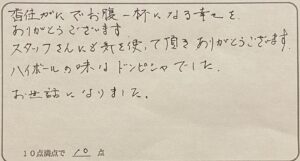 香住がにでお腹一杯になる幸せを
ありがとうございます
スタッフさんにも気を使って頂きありがとうございます。
ハイボールの味はドンピシャでした。
お世話になりました。
10点満点で 10 点